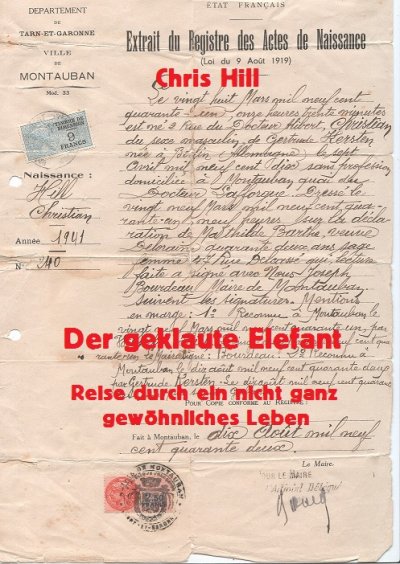 DÉPARTEMENT
DE
TARN-ET-GARONNE
VILLE
DE
MONTAUBAN
Mod. 53
9
FRANCS
Naissance :
Hill
Christian
Année 1941
N° 240
ÉTAT FRANÇAIS
Extrait du Registre des Actes de Naissance
(Loi du 9 Août 1919)
Chris Hill
Le vingt huit Mars mil neuf cent
quarante-un, onze heures trente minutes
est né 2 Rue du Docteur Alibert, Christian
du sexe masculin, de Gertrude Kersten
née à Berlin (Allemagne) le sept
Avril mil neuf cent dix sans profession
domiciliée à Montauban quai du
Docteur Lafforgue. Dressé le
vingt neuf Mars mil neuf cent qua-
rante-un, neuf heures sur la décla-
ration de Mathilde Barthe, veuve
quarante deux ans sage
femme 47 Rue Delcassé qui, lecture
faite a signé avec Nous Joseph
Bourdeau Maire de Montauban.
Suivent les signatures. Mentions
en marge : 1° Reconnu à Montauban le
vingt Mars mil neuf cent quarante un, par
Der geklaute Elefant
Le Maire signé : Bourdeau. 2° Reconnu à
Montauban le dix août mil neuf cent quarante deux
par Gertrude Kersten. Le dix août mil neuf cent quarante
Reise durch ein nicht ganz
gewöhnliches Leben
POUR COPIE CONFORME AU REGISTRE :
Fait à Montauban, le dix Août mil neuf
cent quarante deux.
Le Maire,
POUR LE MAIRE
L'Adjoint Délégué
MONTAUBAN